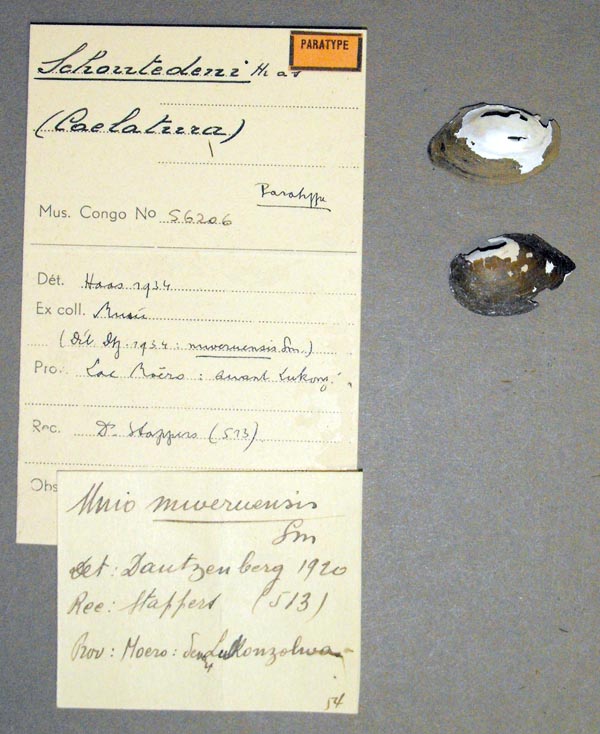 PARATYPE
Schoutedeni Haas
(Caelatura)
Paratype
Mus. Congo No 56206
Dét. Haas 1934
Ex coll. Musée
(Dét Dtz. 1934 : mweruensis Sm.)
Pro. Lac Moëro : avant Lukonz.
Rec. Dr Stappers (513)
Obs
Unio mweruensis
Sm
det : Dautzenberg 1920
Rec : Stappers (513)
Prov : Moero : Lukonzolwa
54